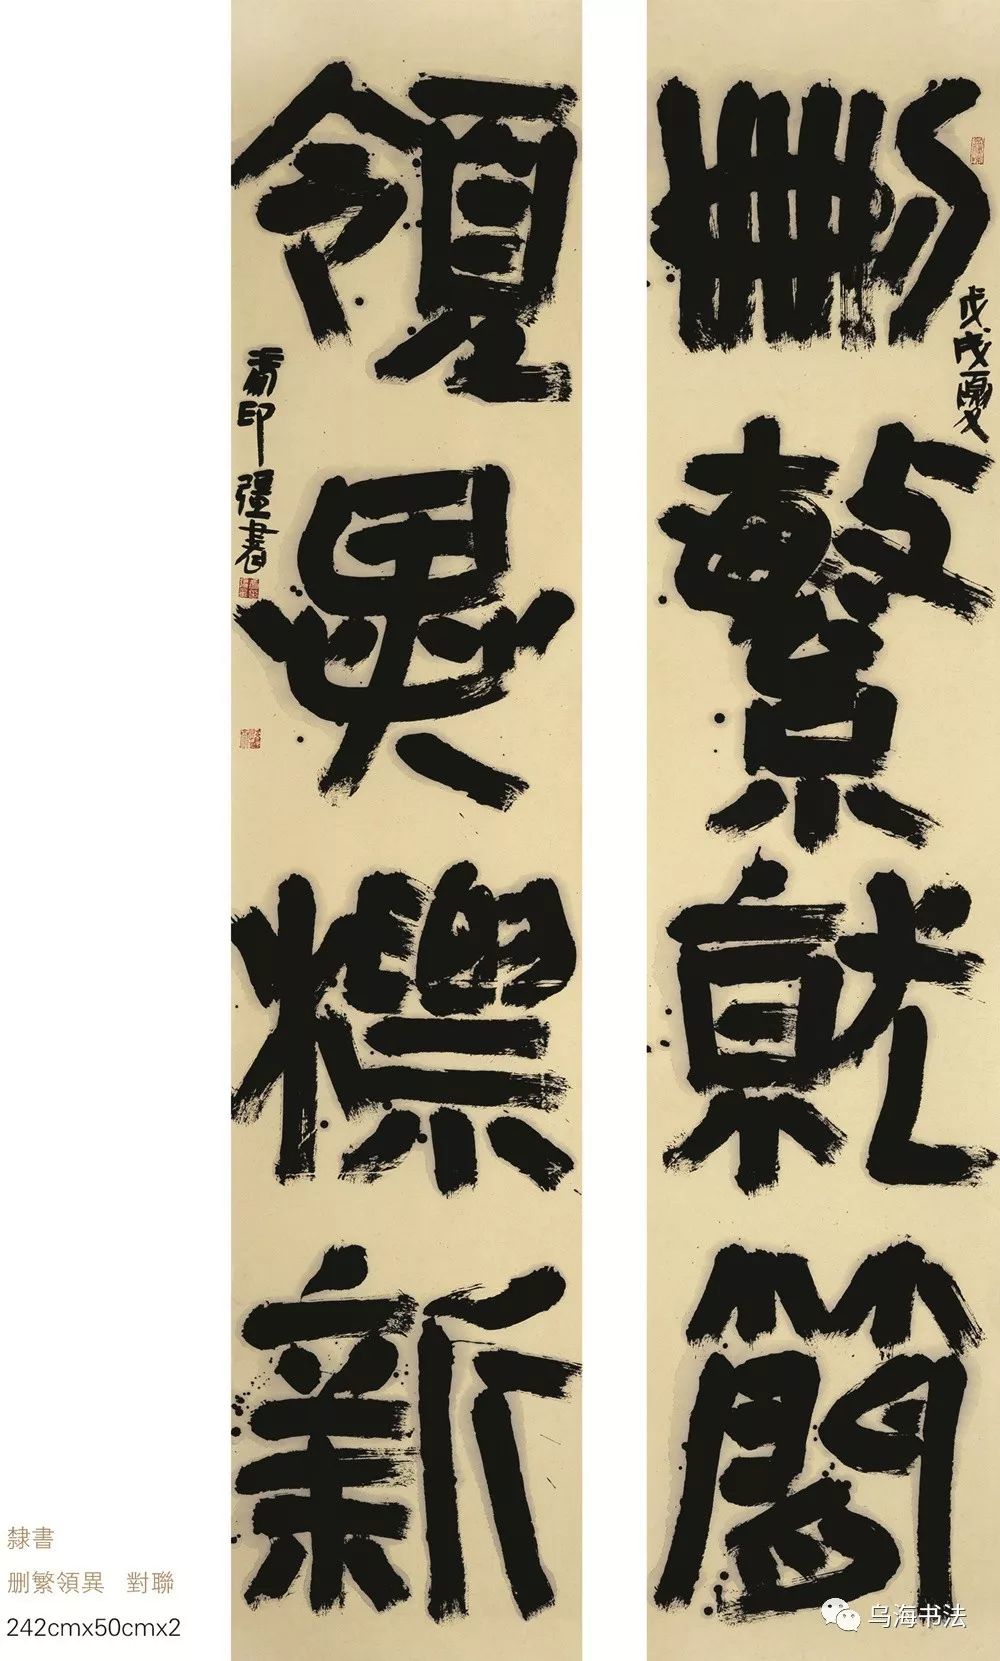 刪繁就簡
戊戌夏
領異標新
喬印強書
隸書
刪繁領異 對聯
242cmx50cmx2
乌海书法